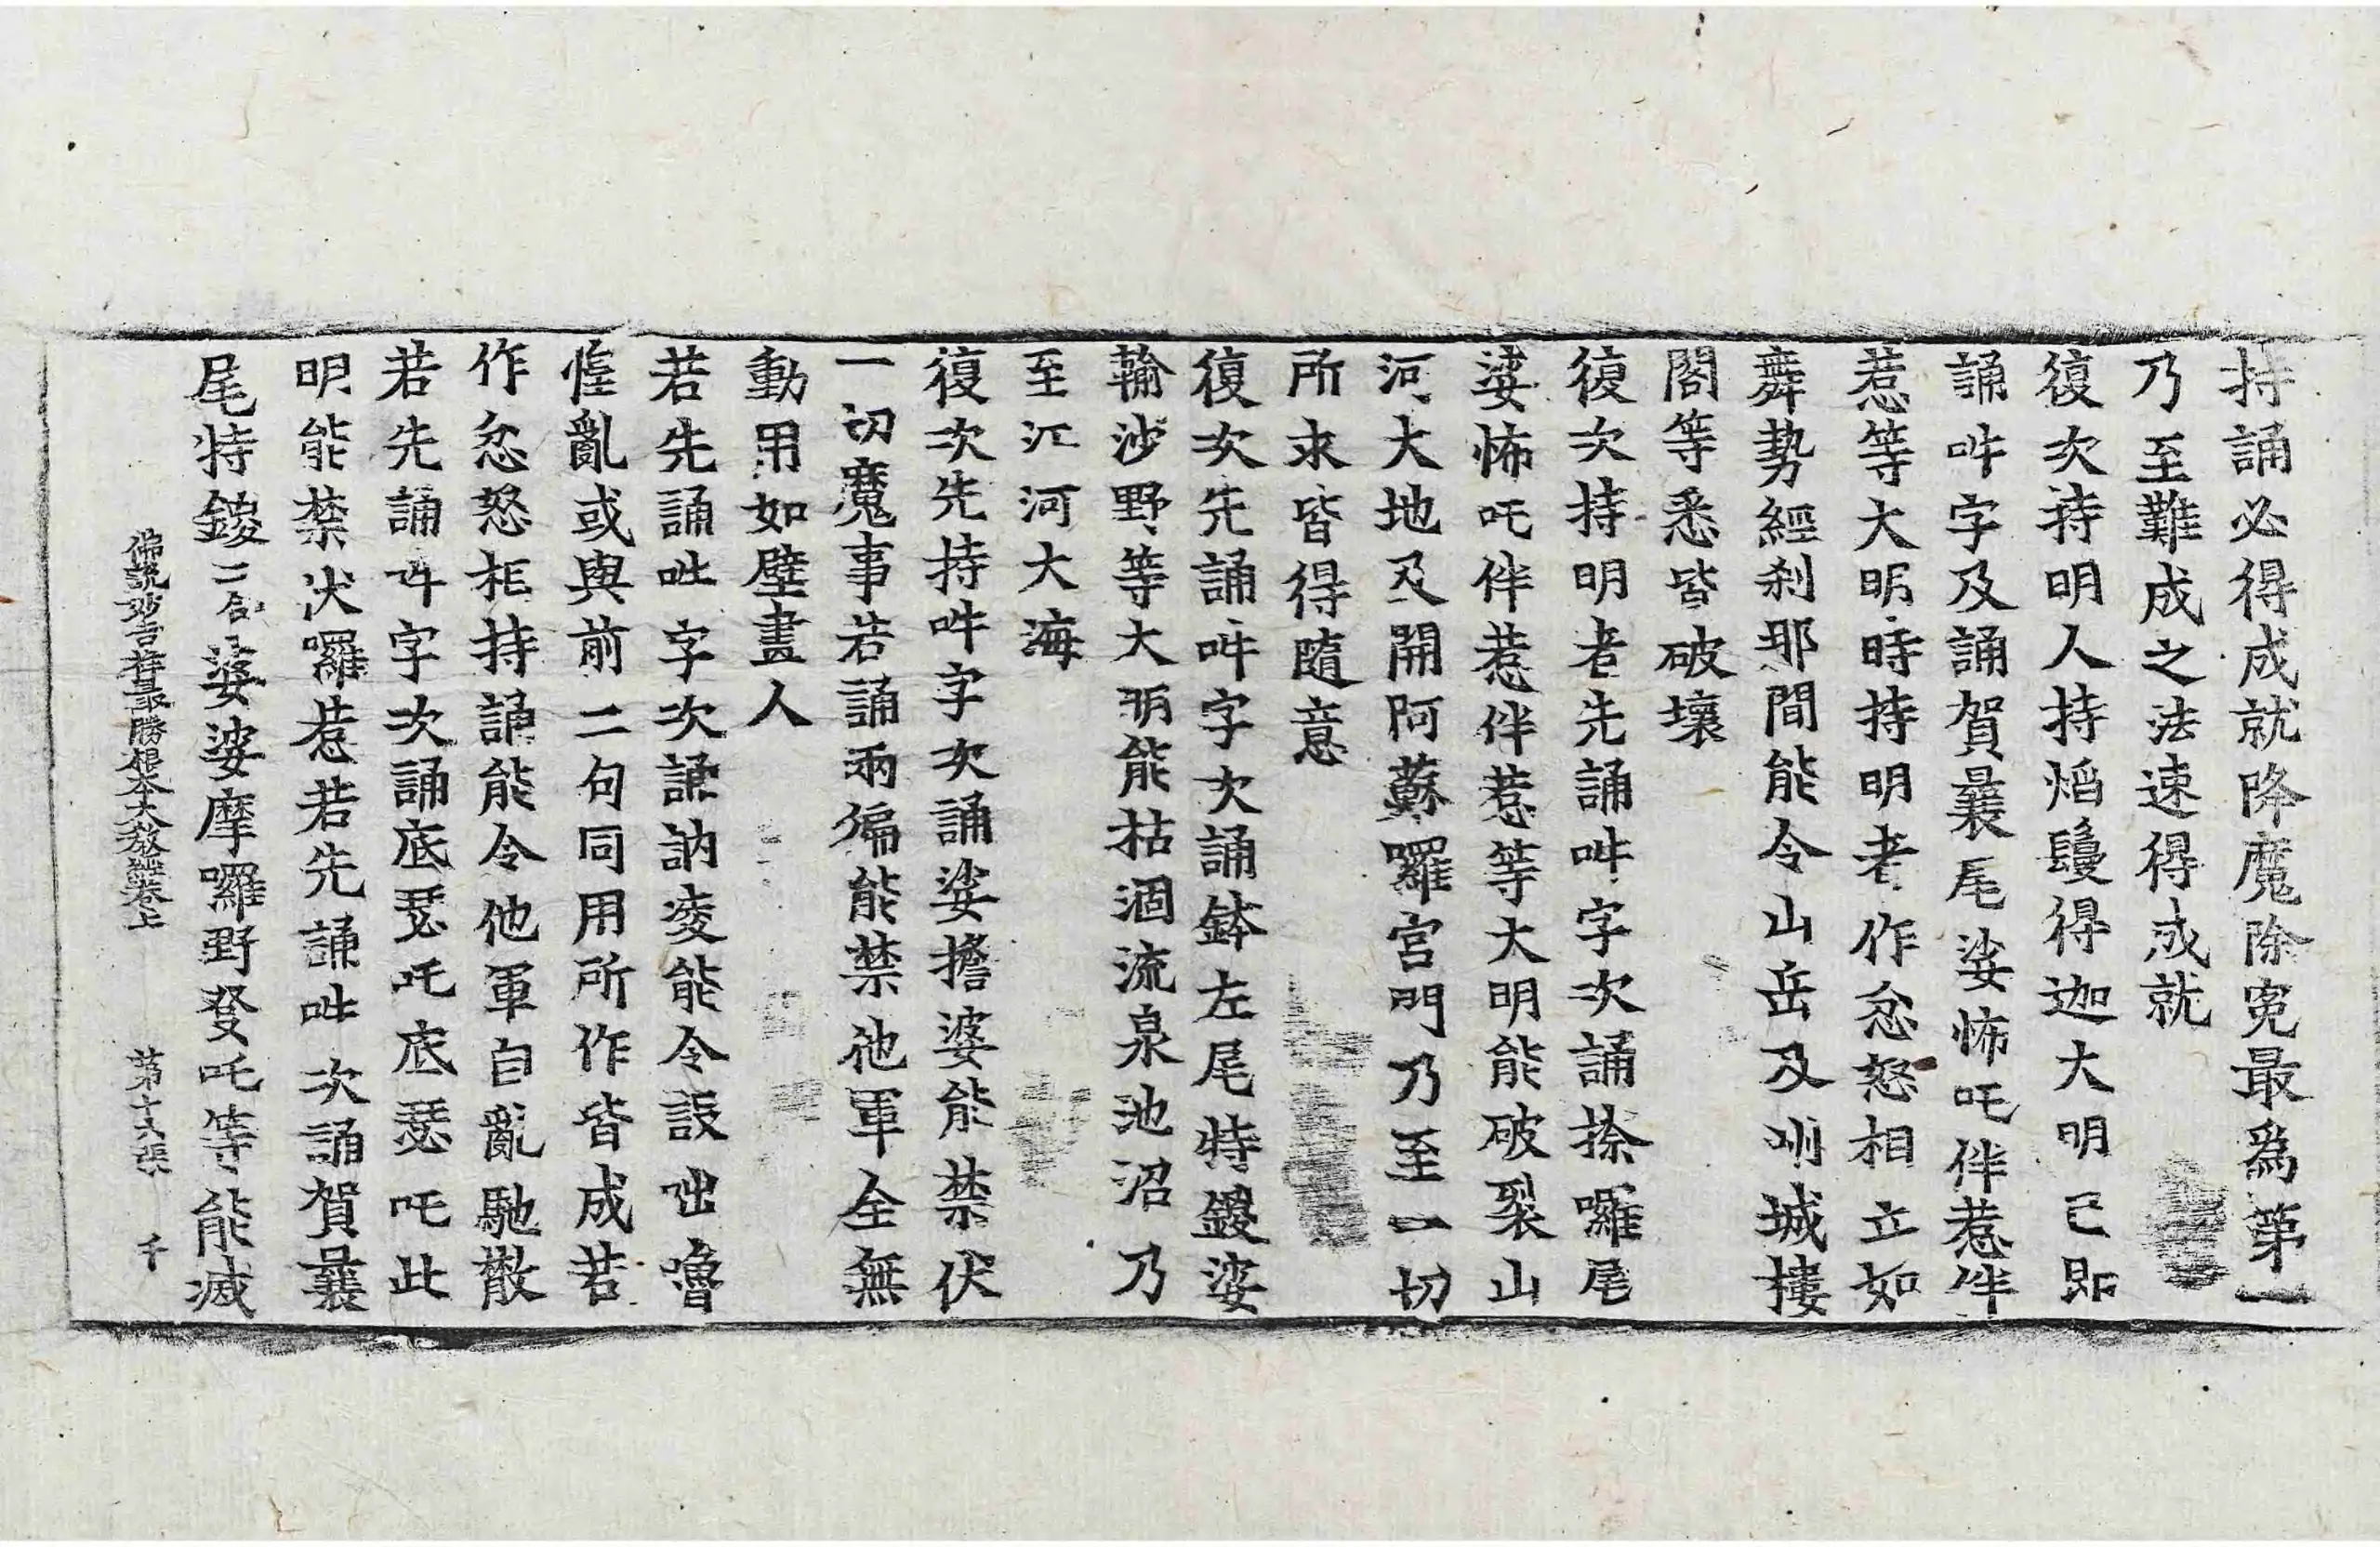 持誦必得成就降魔除寃最爲第一
乃至難成之法速得成就
復次持明人持熖鬘得迦大明已即
誦吽字及誦賀曩尾娑怖吒伴惹伴
惹等大明時持明者作忿怒相立如
舞勢經刹那間能令山岳及州城樓
閣等悉皆破壞
復次持明者先誦吽字次誦捺囉尾
娑怖吒伴惹伴惹等大明能破裂山
河大地及開阿蘇囉宮門乃至一切
所求皆得隨意
復次先誦吽字次誦鉢左尾特鑁娑
輸沙野等大明能枯涸流泉池沼乃
至江河大海
復次先持吽字次誦娑擔婆能禁伏
一切魔事若誦兩徧能禁他軍全無
動用如壁畫人
若先誦吽字次誦訥凌能令設咄嚕
惶亂或與前二句同用所作皆成若
作忿怒相持誦能令他軍自亂馳散
若先誦吽字次誦底瑟吒底瑟吒此
明能禁伏囉惹若先誦吽次誦賀曩
尾特鑁二合婆娑摩囉野發吒等能滅
佛說妙吉祥最勝根本大教經卷上 第十六張 千